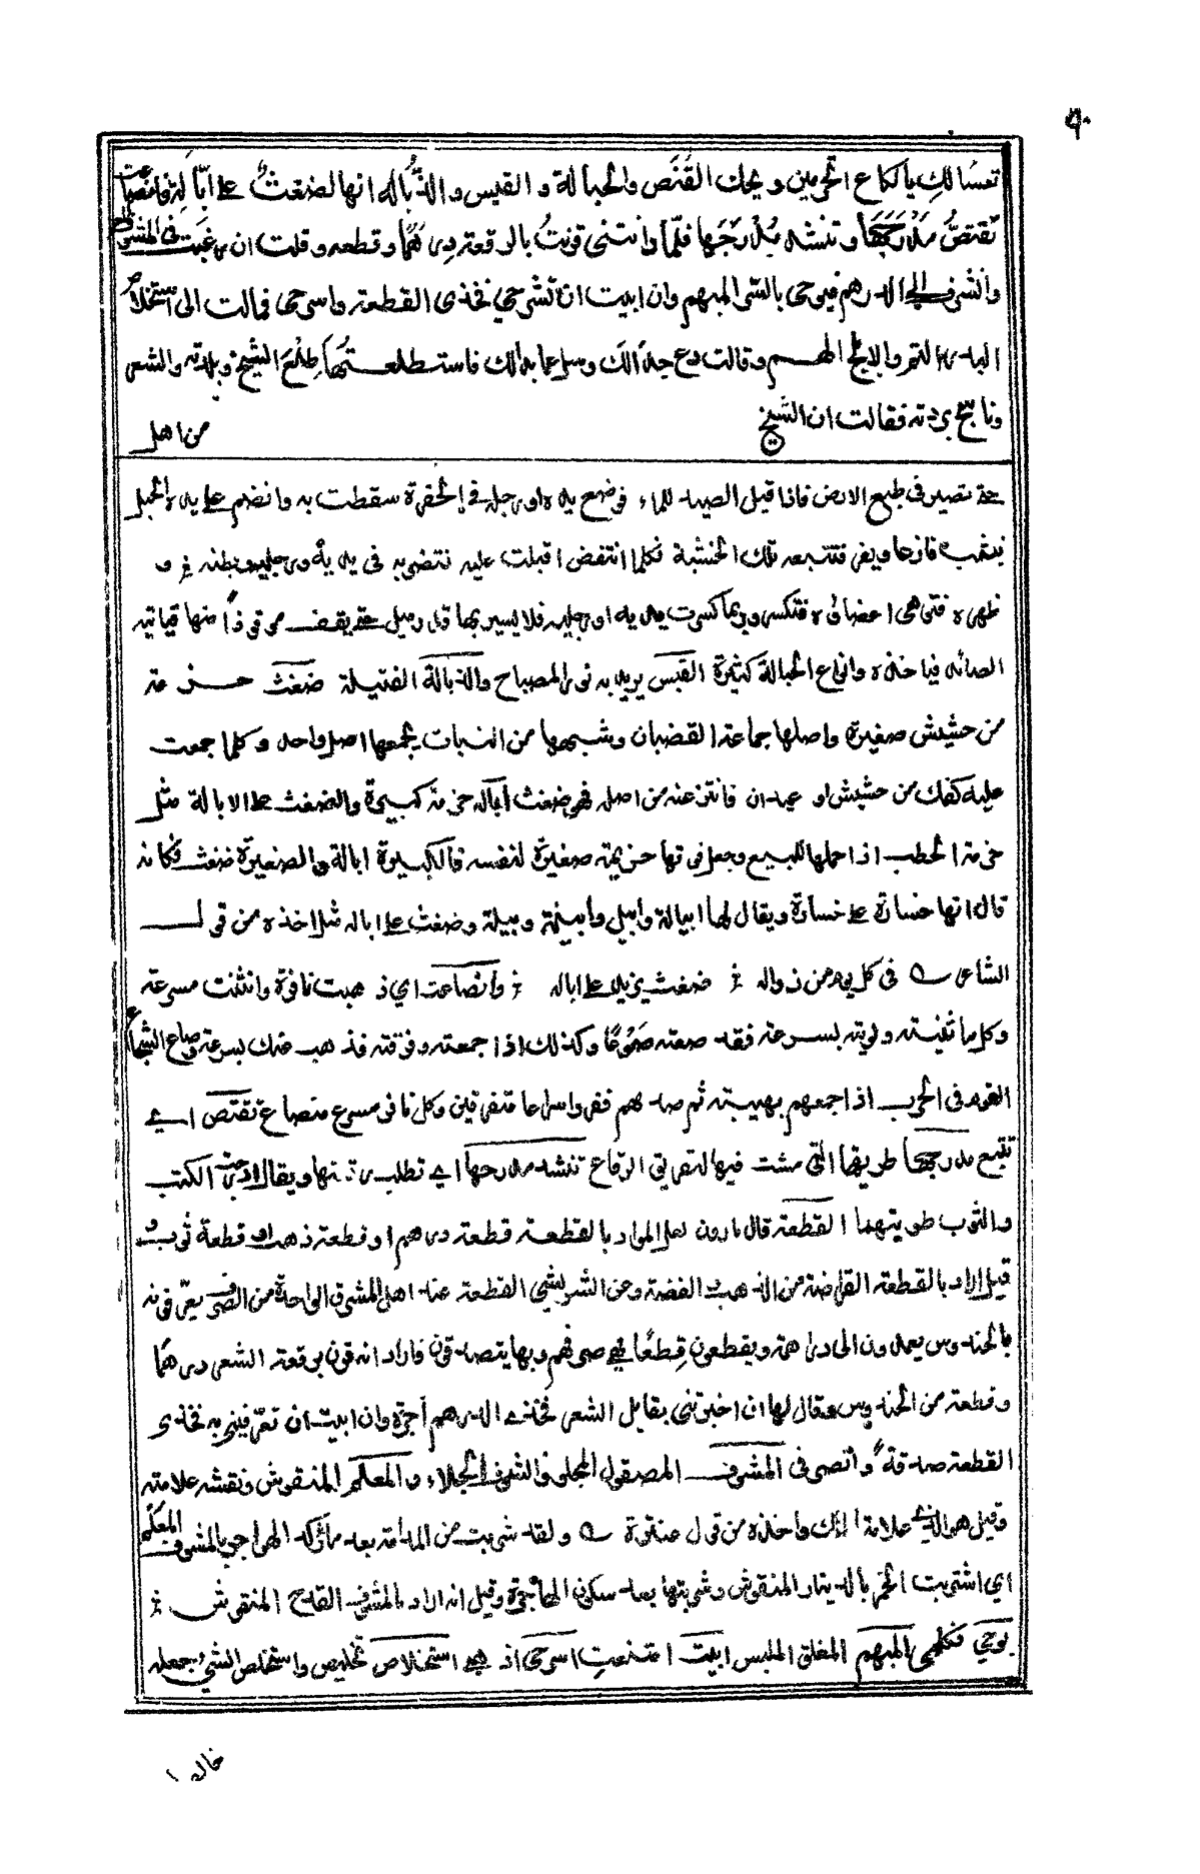 ٩٠
تعسًا لكِ يا لكاع اتحرمين ويحك القَنَص والحبالة و القبس والذُّبالة انها لضغثٌ على ابّالة فانصاعت
تَقتصُّ مَدْرَجَهَا وتنشد مُدْرَجَها فلمّا دانتنى قرنتُ بالرقعة درهمًا وقطعه وقلت ان رغبت فى المشوف
واشرت الى الدرهم فبوحى بالسّر المبهم وان ابيت ان تشرحى فخذى القطعة واسرحى فمالت الى استخلاص
البدر التم والابلج الهم وقالت دع جدالك وسل عما بدا لك فاستطلعتُها طِلْعَ الشيخ وبلدته والشعر
وناسج بردته فقالت ان الشيخ من اهل
حتى تصير فى طبع الارض فاذا قبل الصيد للماء فوضع يده او رجله فى الحفرة سقطت به وانضم على يده الحبل
فينفر فازعا ويفر فتتبعه تلك الخشبة فكلما انتفض اقبلت عليه تضربه فى يديه ورجليه وبطنه و
ظهره فتوهى اعضاؤه فتكسر وربما كسرت يديه او رجليه فلا يسير بها قدر ميل حتى يقف موقوذًا منها فياتيه
الصائد فياخذه وانواع الحبالة كثيرة القبس يريد به نور المصباح والذبالة الفتيلة ضغث حزمة
من حشيش صغيرة واصلها جماعة القضبان وشبهها من النبات يجمعها اصل واحد وكلما جمعت
عليه كفك من حشيش او عيدان فانتزعته من اصله فهو ضغث أبّاله حزمة كبيرة والضغث على الابالة مثل
حزمة الحطب اذا حملها للبيع وجعل فوقها حزيمة صغيرة لنفسه فالكبيرة ابالة والصغيرة ضغث فكانه
قال انها خسارة على خسارة ويقال لها ايبالة وابيل وابيلة وبيلة وضغث على اباله مثل اخذه من قول
الشاعر فى كل يوم من ذواله ضغث يزيد على اباله وانصاعت اي ذهبت نافرة وانثنت مسرعة
وكل ما ثنيته ولويته بسرعة فقد صعته صَوْعًا وكذلك اذا جمعته وفرقته فذهب عنك بسرعة وصاع الشجاع
القوم فى الحرب اذا جمعهم بهيبته ثم صدهم ففروا سراعا متفرقين وكل نافر مسرع منصاع تقتص اي
تتبع مدرجها طريقها التى مشت فيها لتفريق الرقاع تنشد مدرجها اي تطلب رقعتها ويقال ادرجت الكتب
والثوب طويتهما القطعة قال مارون لعل المراد بالقطعة قطعة درهم او قطعة ذهب او قطعة ثوب و
قيل اراد بالقطعة القراضة من الذهب والفضة وعن الشريشي القطعة عند اهل المشرق الواحدة من الصرف يعرفونه
بالحندوس يعمدون الى دراهمه ويقطعون قِطعًا فهى صرفهم وبها يتصدقون فاراد انه قرن برقعة الشعر درهمًا
وقطعة من الحندوس وقال لها ان اخبرتنى بقايل الشعر فخذي الدرهم أجرة وان ابيت ان تعرفينيه فخذى
القطعة صدقةً وانصرفى المشوف المصقول المجلو والشوف الجلاء والمعلم المنقوش ونقشه علامته
وقيل هو الذى علامة الملك واخذه من قول عنترة ولقد شربت من المدامة بعد ما ركد الهواجر بالمشوف المعلم
اي اشتريت الخمر بالدينار المنقوش وشربتها بعد سكون الهاجرة وقيل انه اراد بالمشوف القدح المنقوش
بوحى تكلمى المبهم المغلق الملبس ابيت امتنعتِ اسرحى اذهبى استخلاص تخليص واستخلص الشيء جعله
خالصا